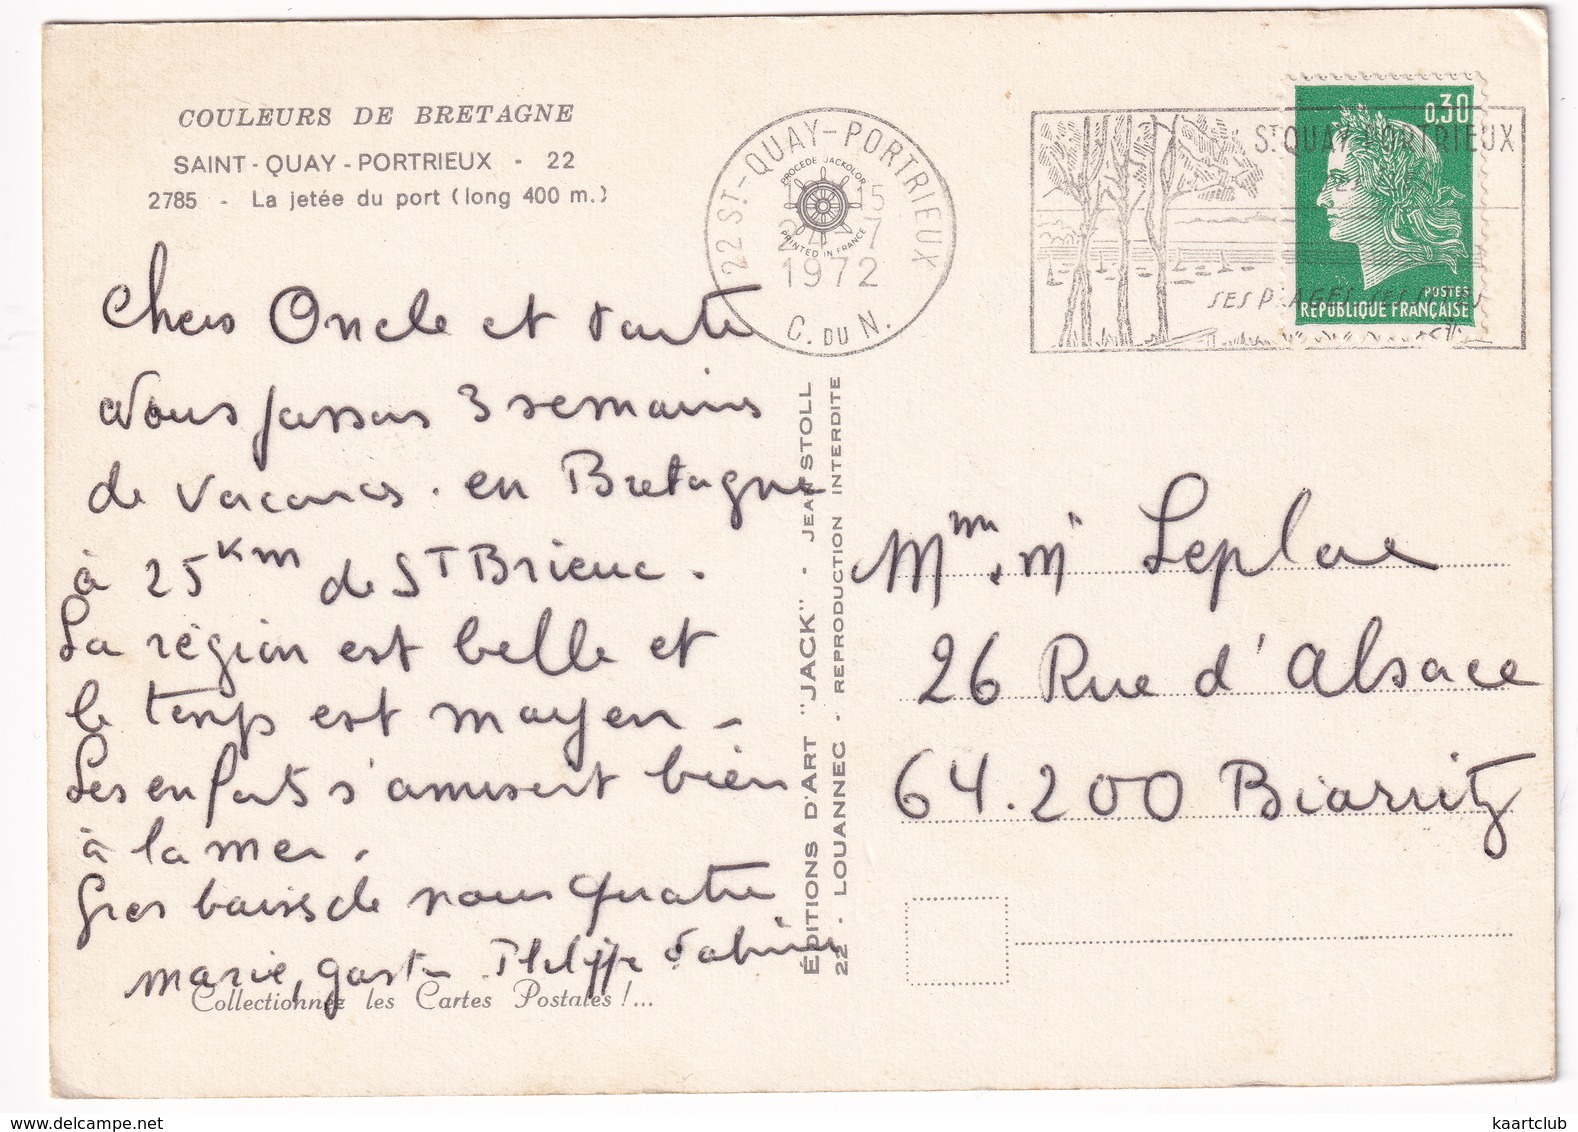 COULEURS DE BRETAGNE
SAINT-QUAY-PORTRIEUX - 22
2785 - La jetée du port (long 400 m.)
Chers Oncle et Tante
Nous passons 3 semaines
de vacances. en Bretagne
à 25 km de St Brieuc.
La région est belle et
le temps est moyen -
Les enfants s'amusent bien
à la mer.
Gros baisers de nous quatre
Marie, Gaston Philippe Fabrice
Collectionnez les Cartes Postales !...
ÉDITIONS D'ART "JACK" - JEAN STOLL
22 - LOUANNEC - REPRODUCTION INTERDITE
22 ST-QUAY-PORTRIEUX
PROCÉDÉ JACKOLOR
PRINTED IN FRANCE
15
24-7
1972
C. DU N.
ST QUAY PORTRIEUX
SES PLAGES
0,30
POSTES
RÉPUBLIQUE FRANÇAISE
Mme Mr Leplac
26 Rue d'Alsace
64.200 Biarritz
www.delcampe.net
kaartclub